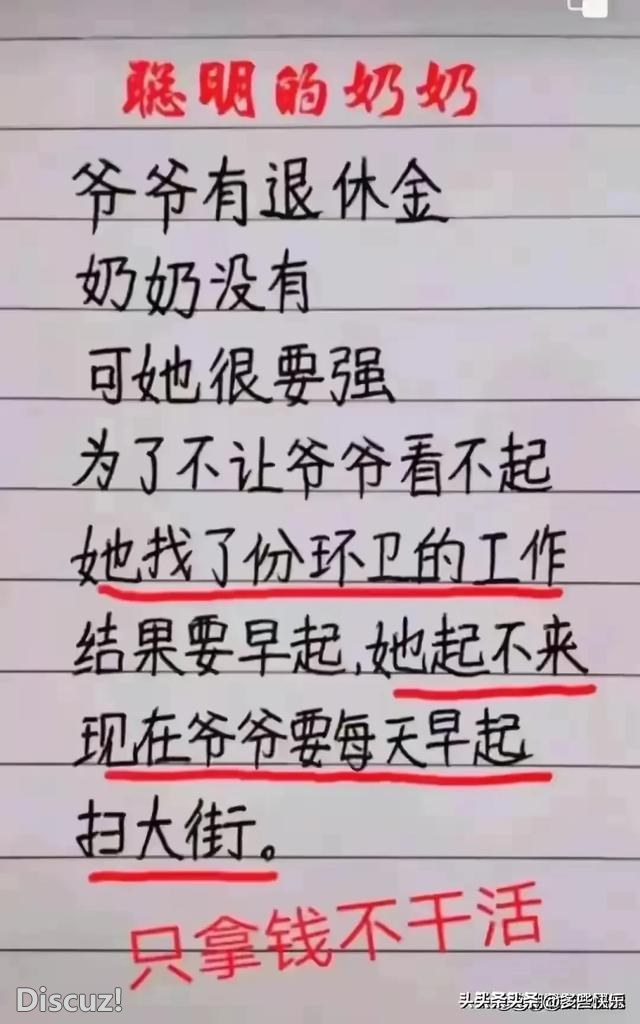 聪明的奶奶
爷爷有退休金
奶奶没有
可她很要强
为了不让爷爷看不起
她找了份环卫的工作
结果要早起,她起不来
现在爷爷要每天早起
扫大街。
只拿钱不干活
Discuz!